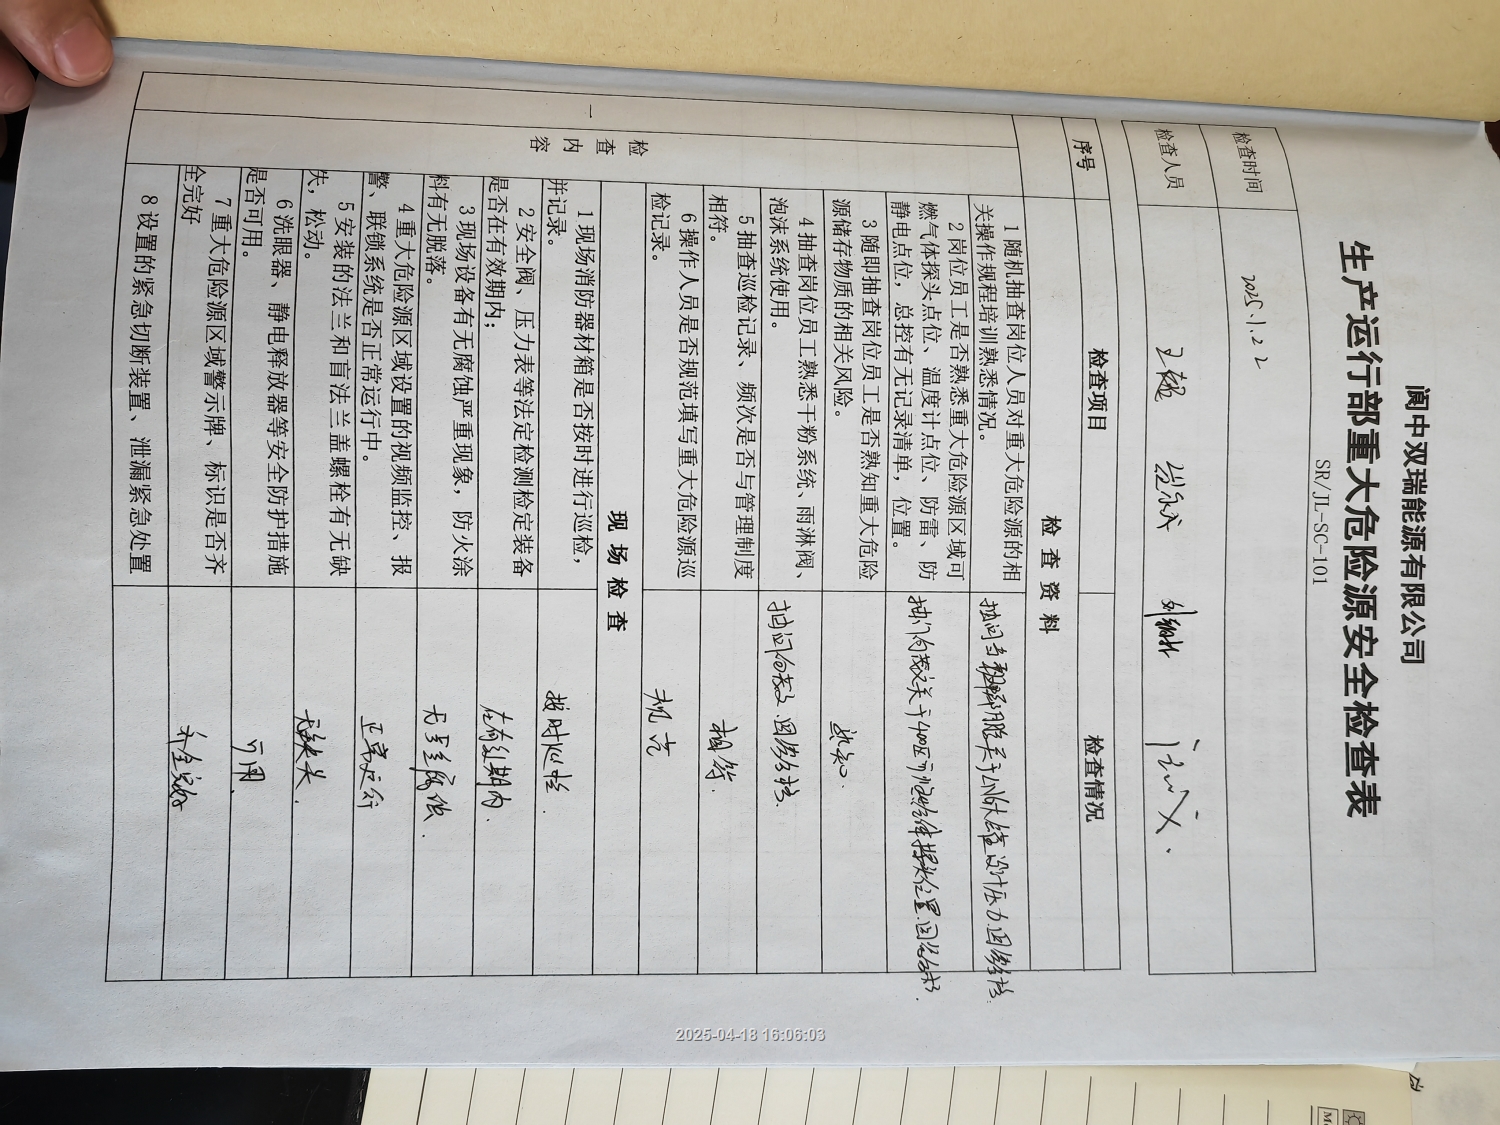 阆中双瑞能源有限公司
生产运行部重大危险源安全检查表
SR/JL-SC-101
检查时间 2025.1.22
检查人员 王超
序号 检查项目 检查情况
检查资料
一
检查内容
1 随机抽查岗位人员对重大危险源的相
关操作规程培训熟悉情况。
抽问 关于LNG大储罐设计压力,回答合格
2 岗位员工是否熟悉重大危险源区域可
燃气体探头点位、温度计点位、防雷、防
静电点位，总控有无记录清单，位置。
抽门 关于400区可燃气体探头位置,回答合格.
3 随即抽查岗位员工是否熟知重大危险
源储存物质的相关风险。
熟知.
4 抽查岗位员工熟悉干粉系统、雨淋阀、
泡沫系统使用。
抽问 回答合格.
5 抽查巡检记录、频次是否与管理制度
相符。
相符.
6 操作人员是否规范填写重大危险源巡
检记录。
规范
现场检查
1 现场消防器材箱是否按时进行巡检，
并记录。
按时巡检.
2 安全阀、压力表等法定检测检定装备
是否在有效期内；
在有效期内.
3 现场设备有无腐蚀严重现象，防火涂
料有无脱落。
无严重腐蚀.
4 重大危险源区域设置的视频监控、报
警、联锁系统是否正常运行中。
正常运行
5 安装的法兰和盲法兰盖螺栓有无缺
失，松动。
无缺失.
6 洗眼器、静电释放器等安全防护措施
是否可用。
可用.
7 重大危险源区域警示牌、标识是否齐
全完好
齐全完好
8 设置的紧急切断装置、泄漏紧急处置
2025-04-18 16:06:03